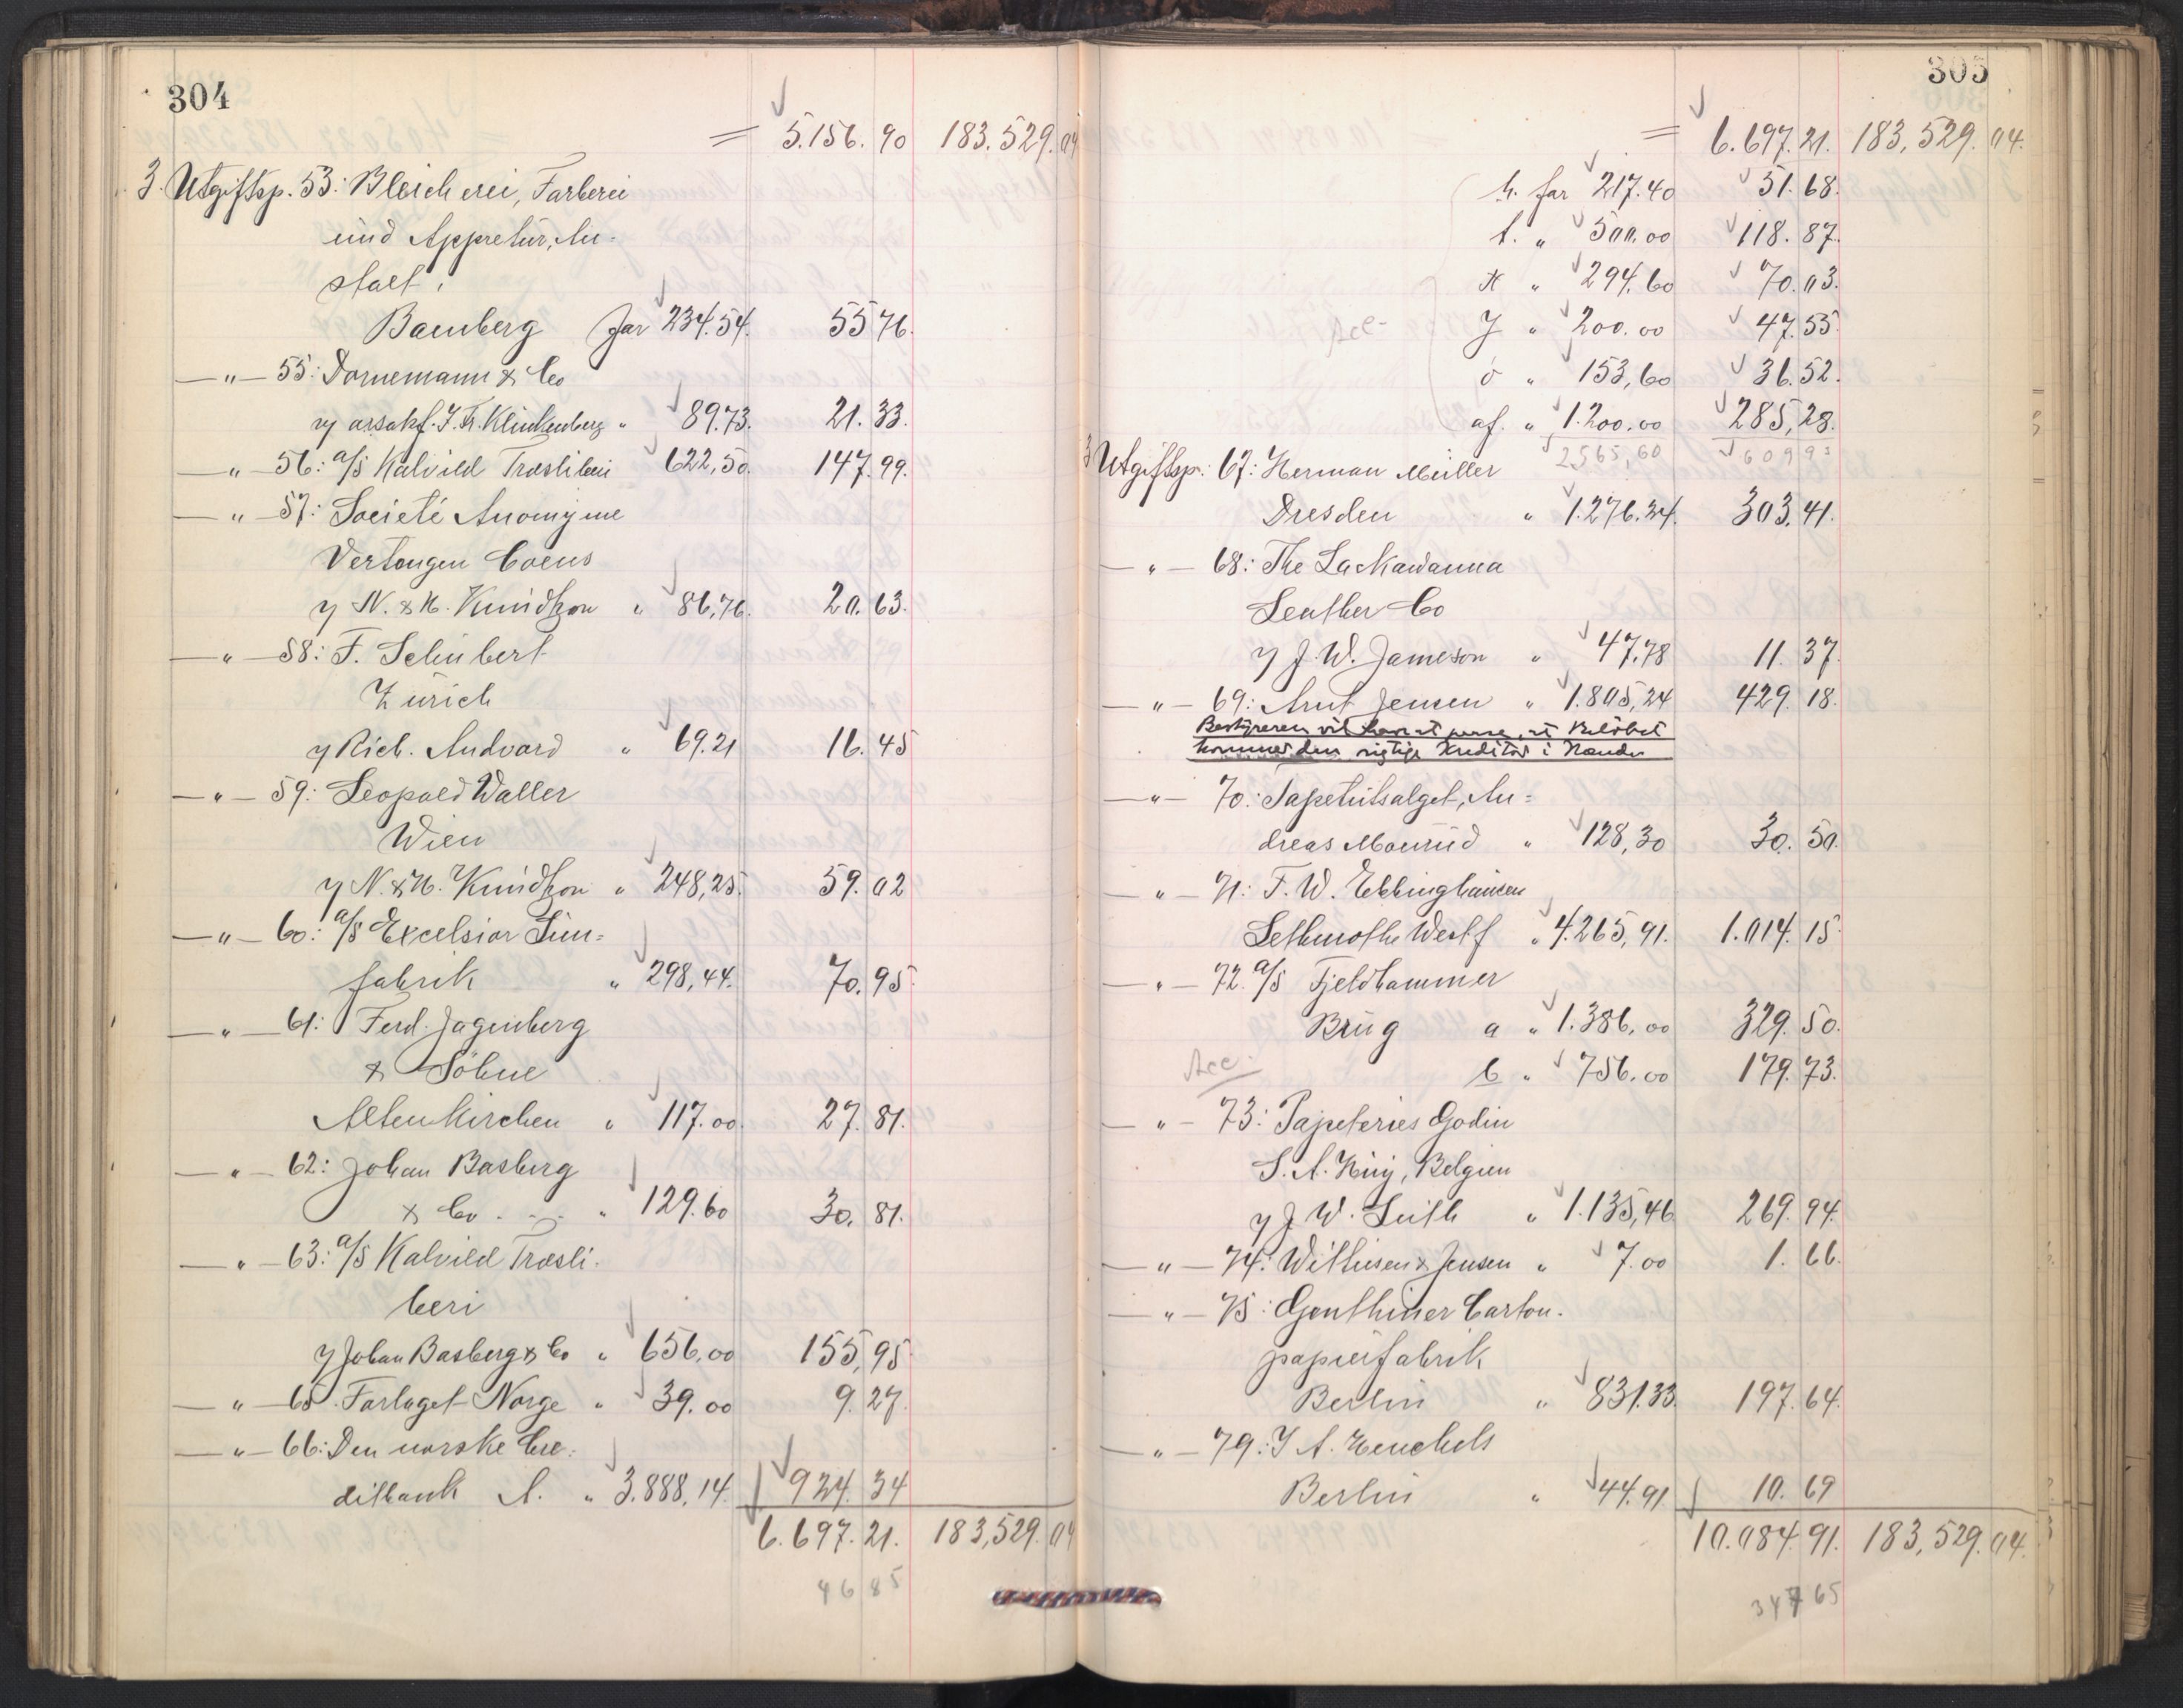 304
= 5.156. 90 183.529.04
3. Utgiftsp. 53: Bleicherei, Färberei
und Appretur, An-
stalt,
Bamberg for 234.54. 55 76.
—"— 55: Dornemann & Co
v/orsakf. J. Fr. Klinkenberg " 89.73. 21. 33.
—"— 56: a/s Kalvild Træsliberi 622,50. 147. 99.
—"— 57: Societé Anonyme
Vertongen Goens
v/ N. & N. Knudtzon " 86,76. 20. 63.
—"— 58: F. Schubert
Zürich
v/ Rich. Andvord " 69.21 16. 45
—"— 59: Leopold Waller
Wien
v/ N. & N. Knudtzon " 248,25. 59. 02
—"— 60: a/s Excelsior Lim-
fabrik " 298,44. 70. 95.
—"— 61: Ferd. Jagenberg
& Söhne
Altenkirchen " 117.00. 27. 81.
—"— 62: Johan Basberg
& Co " 129.60 30. 81.
—"— 63: a/s Kalvild Træsli-
beri
v/ Johan Basberg & Co " 656,00 155, 95.
—"— 65. Forlaget Norge " 39.00 9. 27.
—"— 66: Den norske Cre-
ditbank A. " 3.888,14. 924. 34
6.697. 21. 183,529.04
46 85
305
= 6.697. 21. 183,529. 04.
h. for 217.40 51. 68.
t. " 500.00 118. 87.
x " 294.60 70. 03.
Acc- y " 200.00 47. 55.
ö " 153,60 36. 52.
af. " 1.200.00 285, 28.
2565,60 609 93
3 Utgiftsp. 67: Herman Müller
Dresden " 1.276.34. 303, 41.
—"— 68: The Lackawanna
Leather Co
v/ J. W. Jameson " 47,78 11. 37.
—"— 69: Arnt Jensen " 1.805,24 429. 18.
Bestyreren vil ha at passe, at Beløbet
kommer den rigtige Kreditor i Hænde
—"— 70: Tapetutsalget, An-
dreas Mourud " 128,30 30. 50.
—"— 71: F. W. Ebbinghausen
Lethmathe Westf " 4.265,91. 1.014. 15
—"— 72. a/s Fjeldhammer
Brug a " 1.386,00 329. 50.
Acc- b " 756.00 179. 73.
—"— 73: Papeteries Godin
S. A. Huy, Belgien
v/ J. W. Leith " 1.135,46 269. 94.
—"— 74: Withusen & Jensen " 7.00 1. 66.
—"— 75: Genthiner Carton-
papierfabrik
Berlin " 831.33. 197. 64.
—"— 79: J. A. Henckels
Berlin " 44.91 10. 69
10.084. 91. 183,529. 04.
347 65